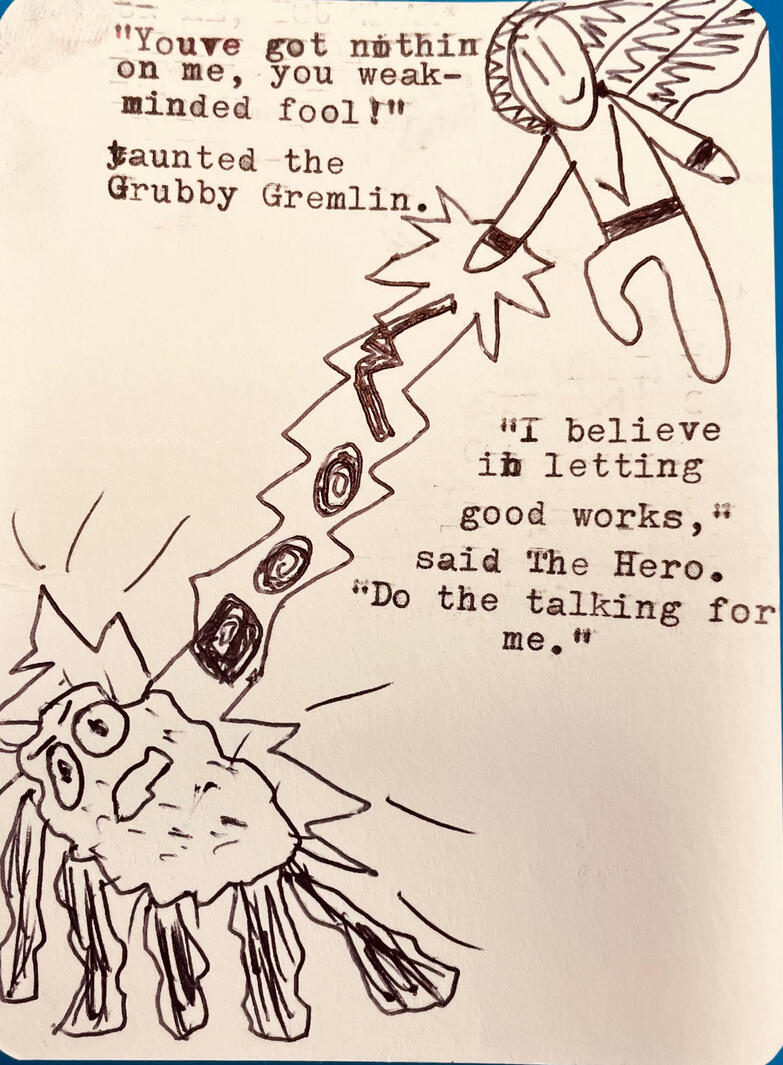 "Youve got nothin
on me, you weak-
minded fool!"
taunted the
Grubby Gremlin.
"I believe
in letting
good works,"
said The Hero.
"Do the talking for
me."